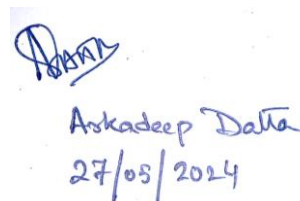 Arkadeep Datta
27/05/2024